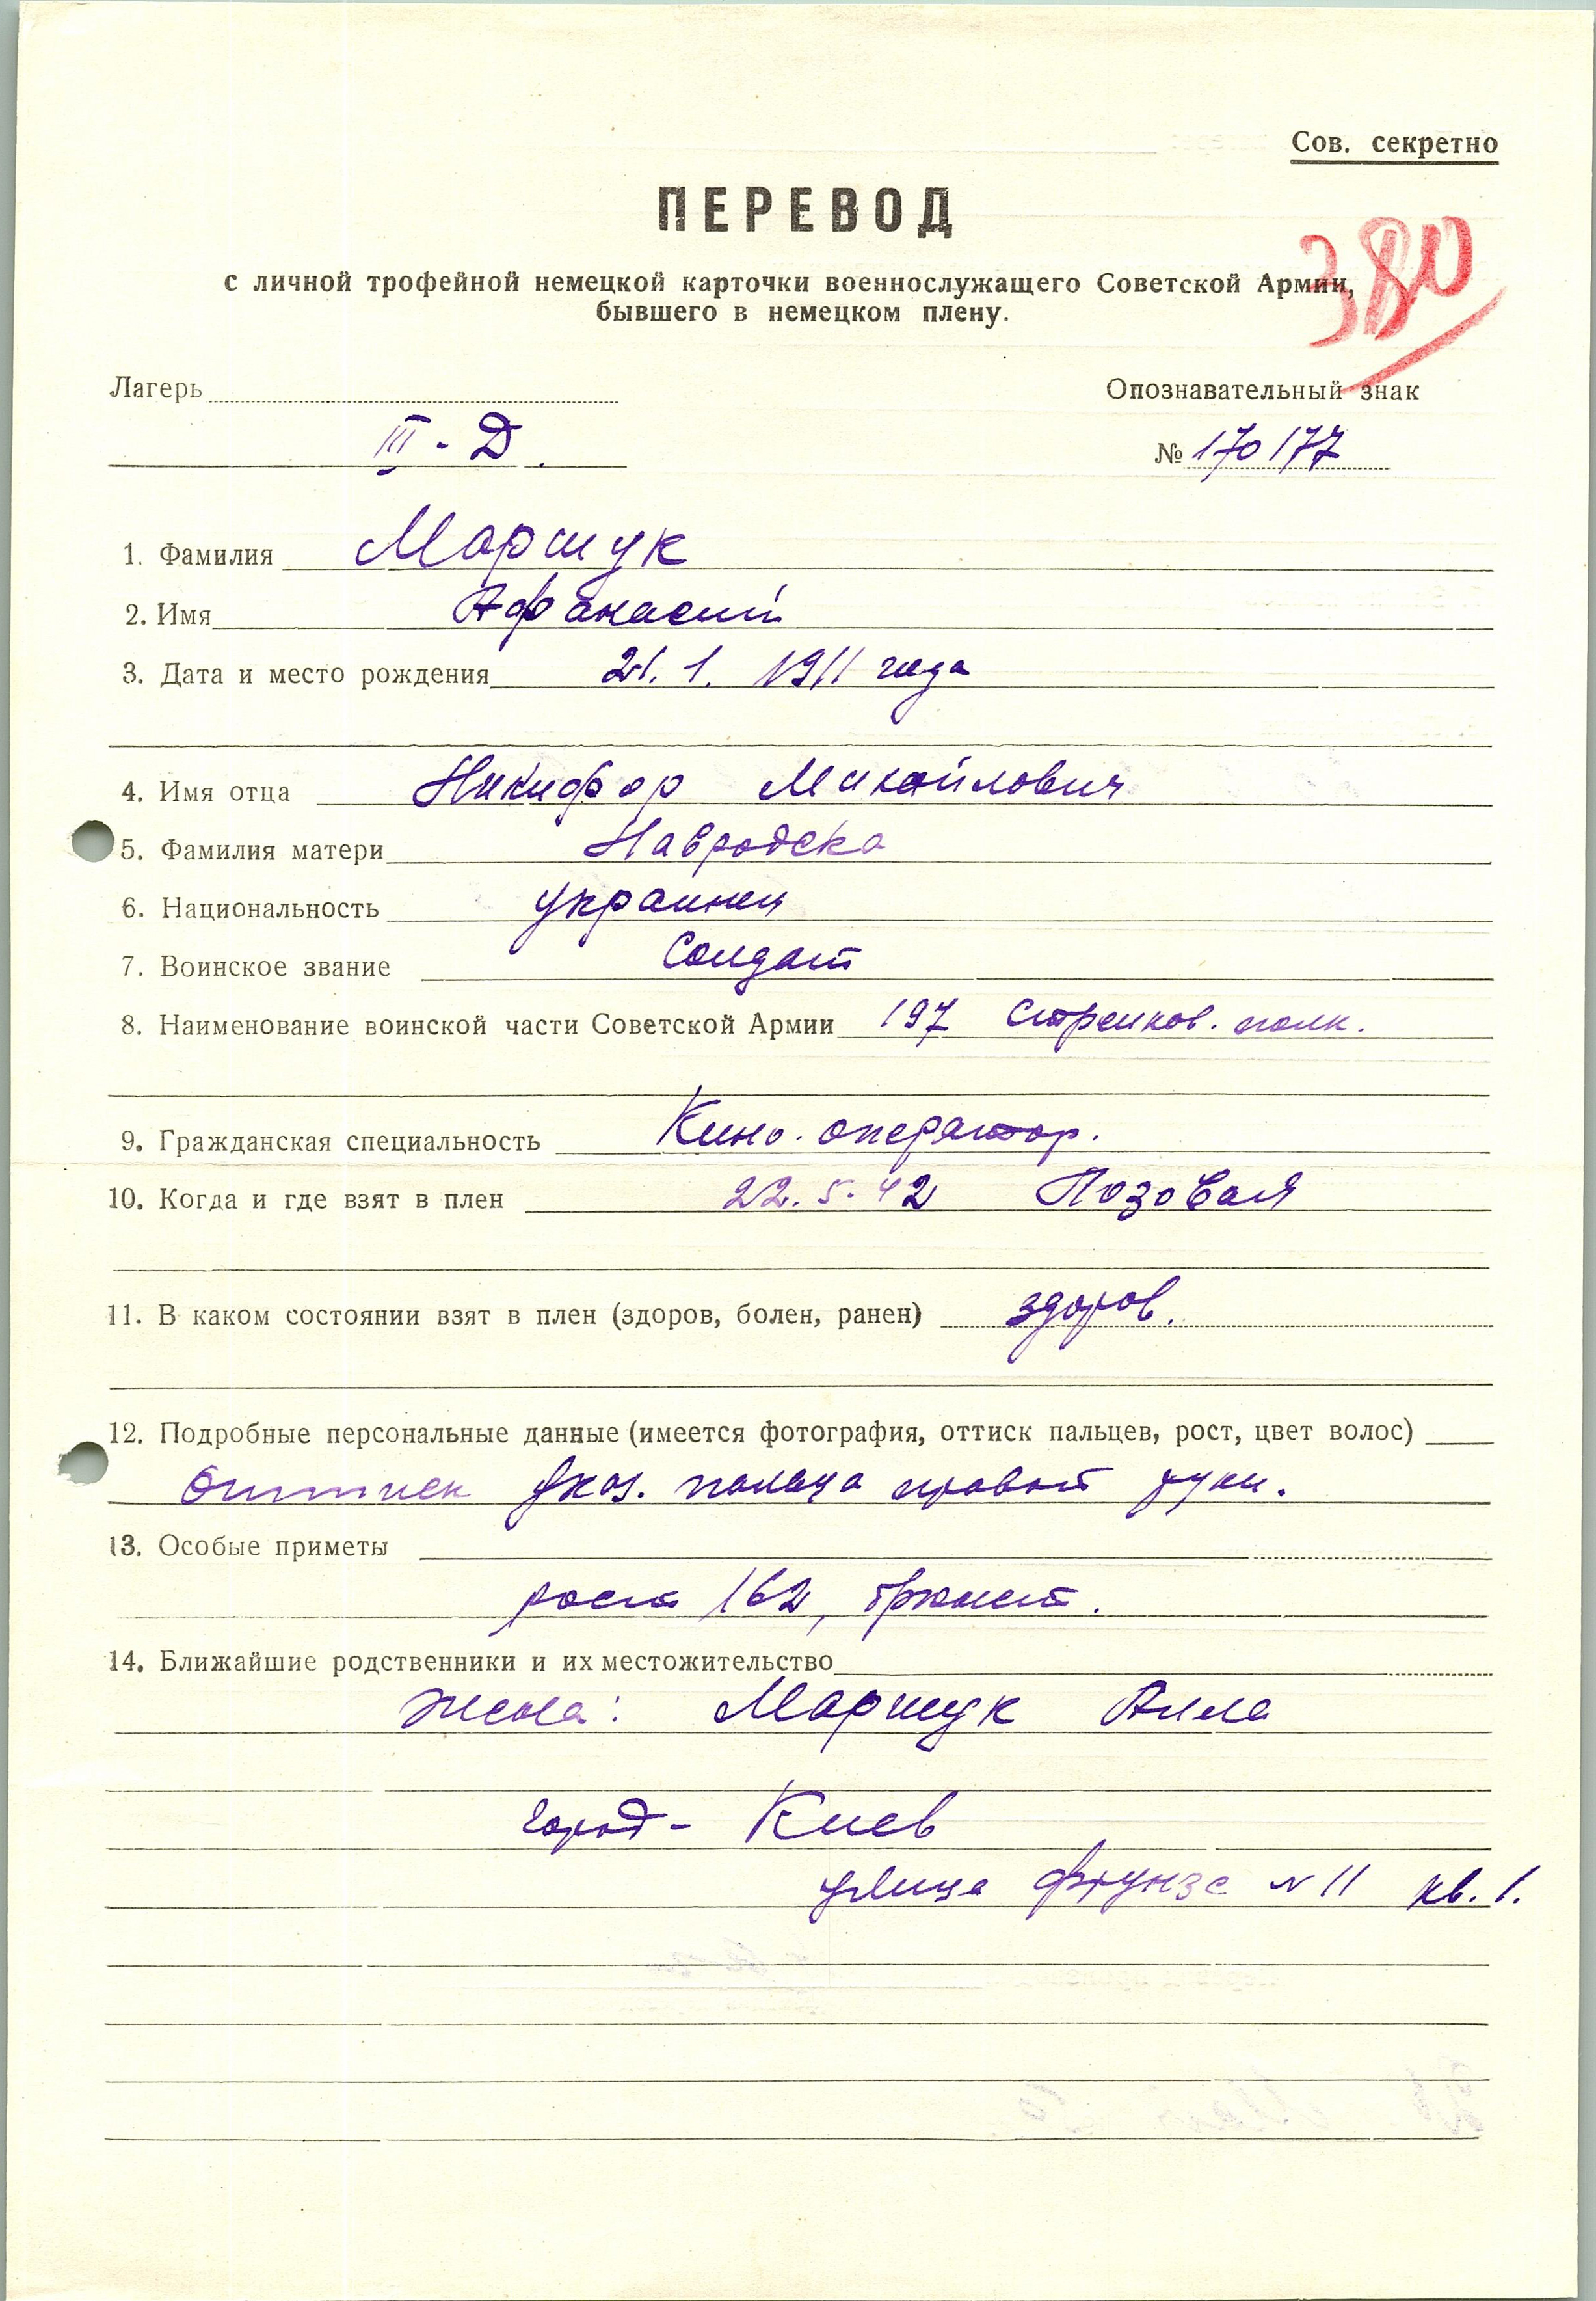 Сов. секретно
ПЕРЕВОД
380
с личной трофейной немецкой карточки военнослужащего Советской Армии,
бывшего в немецком плену.
Лагерь Опознавательный знак
III - Д. № 170177
1. Фамилия Маршук
2. Имя Афанасий
3. Дата и место рождения 21. 1. 1911 года
4. Имя отца Никифор Михайлович
5. Фамилия матери Навродска
6. Национальность украинец
7. Воинское звание Солдат
8. Наименование воинской части Советской Армии 197 Стрелков. полк.
9. Гражданская специальность Кино. оператор.
10. Когда и где взят в плен 22. 5. 42 Лозовая
11. В каком состоянии взят в плен (здоров, болен, ранен) здоров.
12. Подробные персональные данные (имеется фотография, оттиск пальцев, рост, цвет волос)
Оттиск указ. пальца правой руки.
13. Особые приметы
рост 162, брюнет.
14. Ближайшие родственники и их местожительство
жена: Маршук Алла
город - Киев
улица Фрунзе N 11 кв. 1.